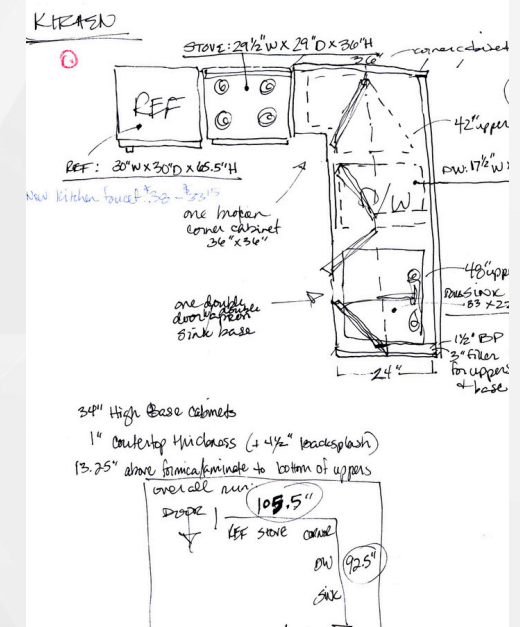 STOVE: 29½"W X 29"D X 36"H
corner cabinet
36"
REF
42" upper
REF: 30"W X 30"D X 65.5"H
DW: 17½"W
New Kitchen faucet $38 -
D/W
one broken
corner cabinet
36" x 36"
48" uppe
SINK
one double
door apron
sink base
1½" BP
3" filler
for uppers
+ base
24"
34" High Base Cabinets
1" coutertop thickness (+ 4½" backsplash)
13.25" above formica/laminate to bottom of uppers
overall run:
105.5"
DOOR
REF STOVE CORNER
DW
92.5"
SINK